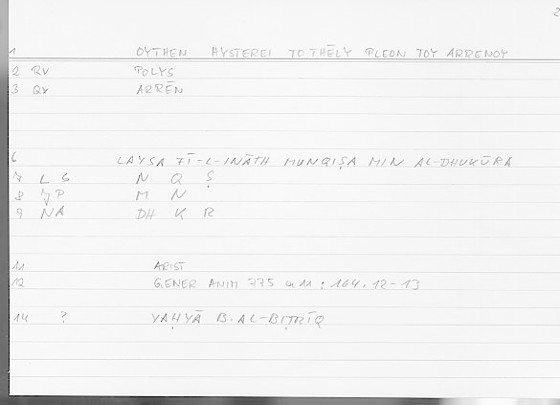 2
1 OYTHEN HYSTEREI TO THĒLY PLEON TOY ARRENOY
2 QV POLYS
3 QV ARRĒN
6 LAYSA FĪ-L-INĀTH MUNQIṢA MIN AL-DHUKŪRA
7 L G N Q Ṣ
8 P M N
9 NA DH K R
11 ARIST
12 GENER ANIM 775 a 11 : 164.12-13
14 ? YAḤYĀ B. AL-BIṬRĪQ